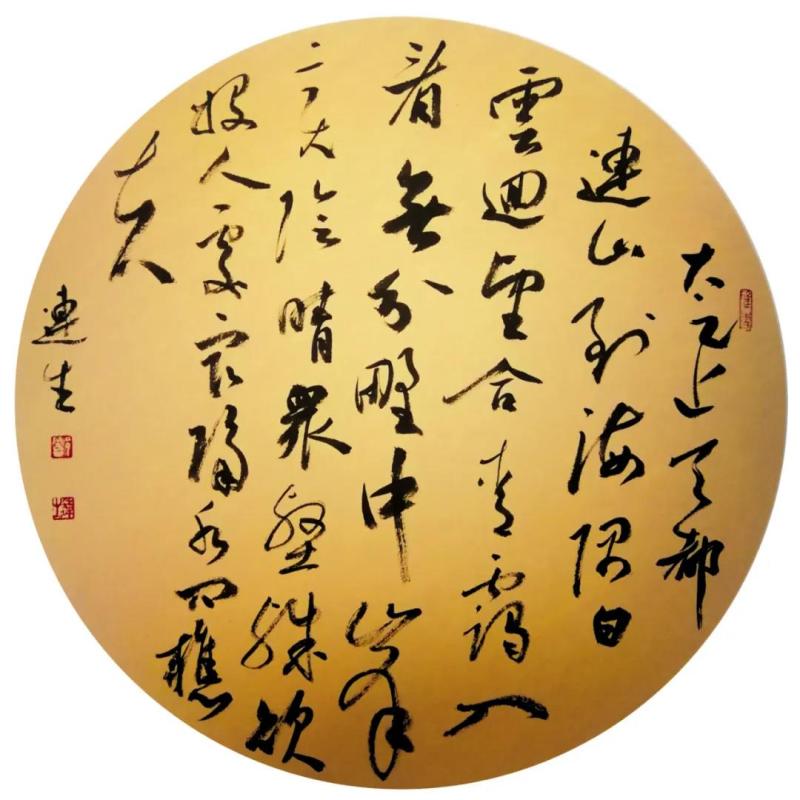 太乙近天都
連山到海隅白
雲迴望合青靄入
看無分野中峰
變陰晴衆壑殊欲
投人處宿隔水問樵
夫
連生